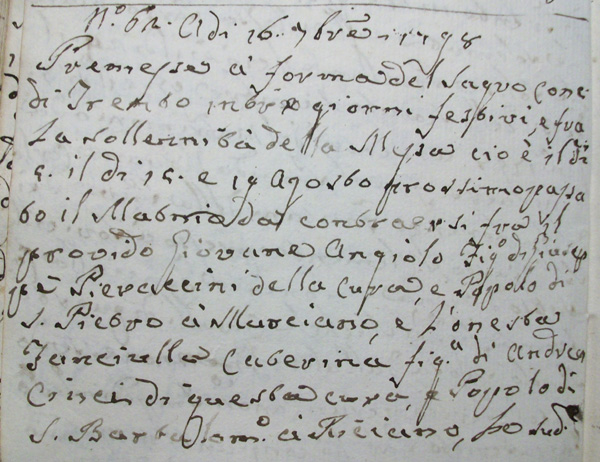 N.º 62. A di 16. 7bre 1798
Premesse à forma del Sagro Conc:
di Trento in tre giorni festivi, e fra
La sollennità della Messa cioè il dì
5. il di 15. e 19 Agosto prossimo passa
to il Matrio da contraersi fra il
provido Giovane Angiolo Fig.º di Giusep
pe Pieraccini della Cura, e Popolo di
S. Pietro à Marciano, e l'onesta
Fanciulla Caterina fig.ª di Andrea
Cinci di questa cura, e Popolo di
S. Bartolom.º à